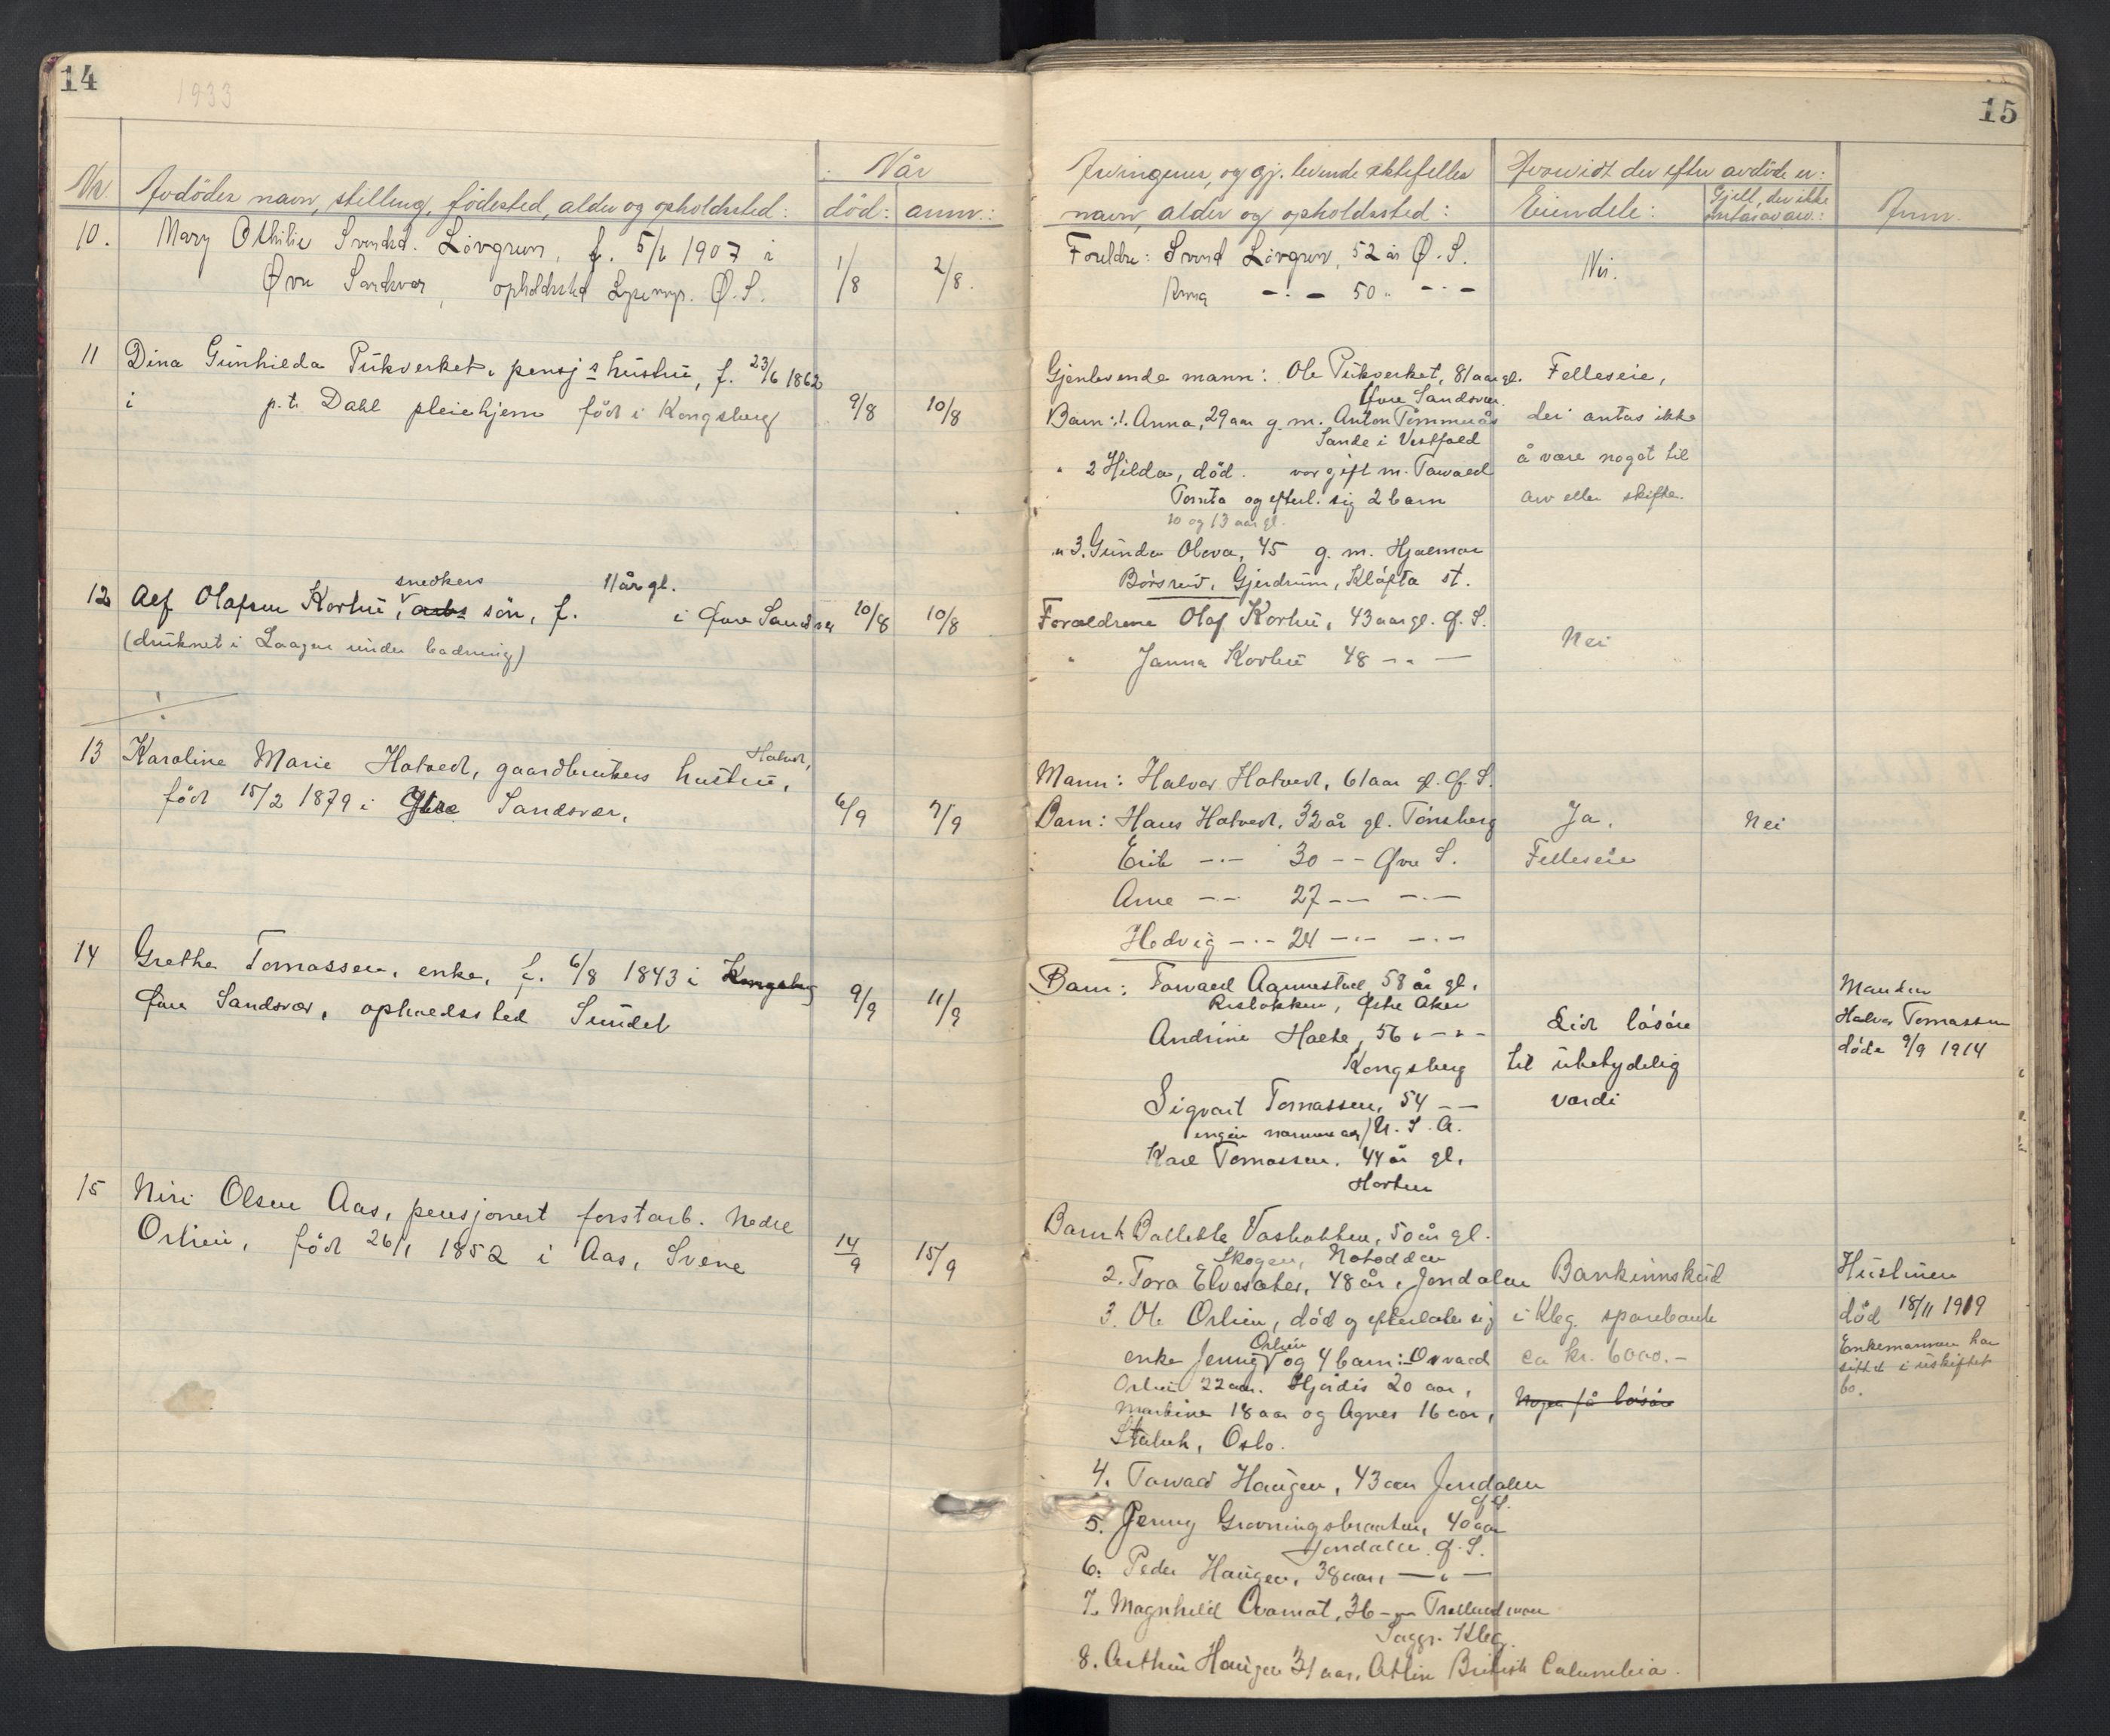 14
1933
Nr.
Avdödes navn, stilling, födested, alder og opholdssted:
Når
död:
anm.:
10. Mary Othilie Svendsd. Lövgren, f. 5/6 1907 i 1/8 2/8.
Øvre Sandsver, opholdssted Ø.S.
11 Dina Gunhilda Pukverket, pensj. hustru, f. 23/6 1862
i p.t. Dahl pleiehjem född i Kongsberg 9/8 10/8
snedkers 11 år gl.
12 Alf Olafsen Korbu, arbs sön, f. i Övre Sandsver 10/8 10/8
(druknet i Laagen under badning)
Hatvedt,
13 Karoline Marie Hatvedt, gaardbrukers hustru,
född 15/2 1879 i Övre Sandsver, 6/9 7/9
14 Grethe Tomassen, enke, f. 6/8 1843 i Kongsberg
Övre Sandsver, opholdssted Sundet 9/9 11/9
15 Niri Olsen Aas, pensjonert forstarb. Nedre
Orlien, född 26/1 1852 i Aas, Svene 14/9 15/9
15
Arvingenes, og gj. levende ektefelles
navn, alder og opholdssted:
Hvorvidt der efter avdöde er:
Eiendele:
Gjeld, der ikke
Anm.
Foreldre: Svend Lövgren, 52 år Ø.S. Nei.
Anna -·- 50 " -·-
Gjenlevende mann: Ole Pukverket, 81 aar gl. Felleseie,
Övre Sandsver.
Barn: 1. Anna, 29 aar g. m. Anton Tömmerås der antas ikke
Sande i Vestfold
" 2 Hilda, död. var gift m. Torvald å være noget til
Tomta og efterl. sig 2 barn arv eller skifte.
10 og 13 aar gl.
" 3. Gunda Oleva, 45 g. m. Hjalmar
Börsrud, Gjerdrum, Klöfta st.
Foreldrene Olaf Korbu, 43 aar gl. Ö.S. Nei
" Janna Korbu 48 -"-
Mann: Halvor Hatvedt, 61 aar gl. Ö.S.
Barn: Hans Hatvedt, 32 år gl. Tönsberg Ja. Nei
Erik -·- 30 -- Övre S. Felleseie
Arne -- 27 -- -·-
Hedvig -·- 24 -·- -·-
Barn: Torvald Aannestad, 58 år gl.
Rislökken, Östre Aker
Andrine Holte, 56 " - " - Lidt lösöre
Kongsberg til ubetydelig
Sigvart Tomassen, 54 -- verdi
ingen nærmere adr U.S.A.
Karl Tomassen, 44 år gl.
Horten
Manden
Halvor Tomassen
döde 9/9 1914
Barn 1. Vashakken, 50 år gl.
Skogen, Notodden
2. Tora Elvesæter, 48 år, Jondalen Bankinnskud
3. Ole Orlien, död og efterlater sig i Kbg. sparebank
Orlien
enke Jenny og 4 barn: Osvald ca kr. 6000.-
Orlien 22 aar. Hjördis 20 aar,
Martine 18 aar og Agnes 16 aar, Nogen få lösöre
Oslo.
4. Torvald Haugen, 43 aar Jondalen
Ö.S.
5. Jenny Gravningsbraaten, 40 aar
Jondalen. Ö.S.
6. Peder Haugen, 38 aar, -"-
7. Magnhild Kvamot, 36 -"-
Saggr. Kbg.
8. Arthur Haugen 31 aar, Atlin British Columbia.
Hustruen
död 18/11 1919
Enkemannen har
sittet i uskiftet
bo.